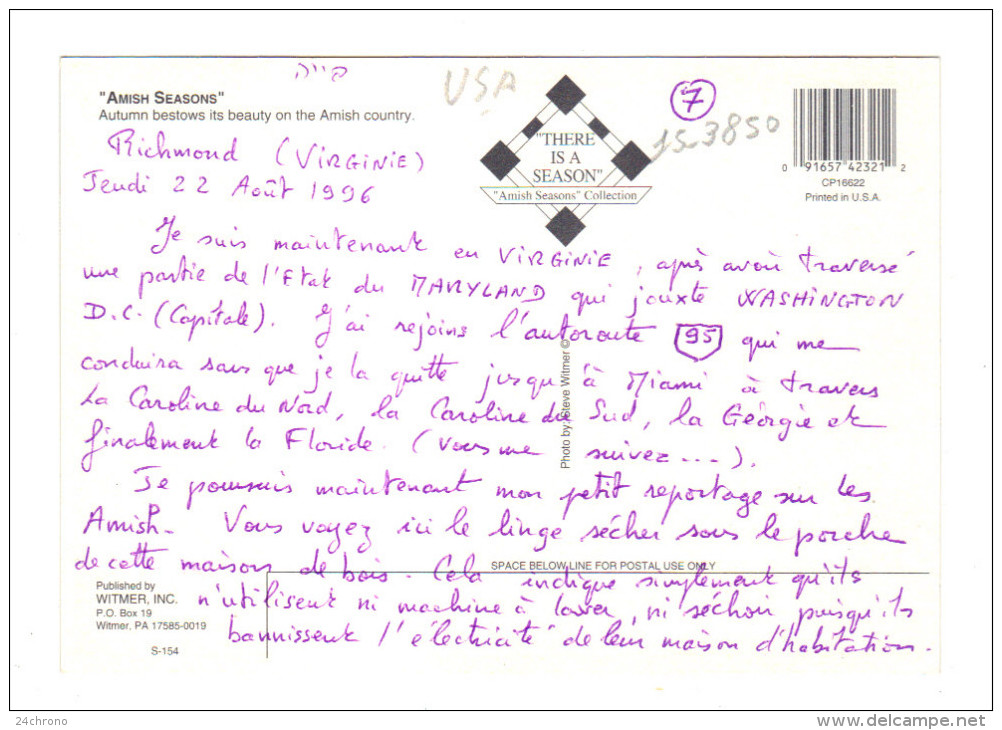 USA
7
15-3850
"AMISH SEASONS"
Autumn bestows its beauty on the Amish country.
"THERE
IS A
SEASON"
"Amish Seasons" Collection
0 91657 42321 2
CP16622
Printed in U.S.A.
Richmond (VIRGINIE)
Jeudi 22 Août 1996
Je suis maintenant en VIRGINIE, après avoir traversé
une partie de l'Etat du MARYLAND qui jouxte WASHINGTON
D.C. (Capitale). J'ai rejoins l'autoroute 95 qui me
conduira sans que je la quitte jusqu'à Miami à travers
La Caroline du Nord, la Caroline du Sud, la Géorgie et
finalement la Floride. (Vous me suivez...).
Je poursuis maintenant mon petit reportage sur les
Amish. Vous voyez ici le linge sécher sous le porche
de cette maison de bois. Cela indique simplement qu'ils
n'utilisent ni machine à laver, ni séchoir puisqu'ils
bannissent l'électricité de leur maison d'habitation.
Photo by: Steve Witmer ©
SPACE BELOW LINE FOR POSTAL USE ONLY
Published by
WITMER, INC.
P.O. Box 19
Witmer, PA 17585-0019
S-154
24chrono
delcampe.net